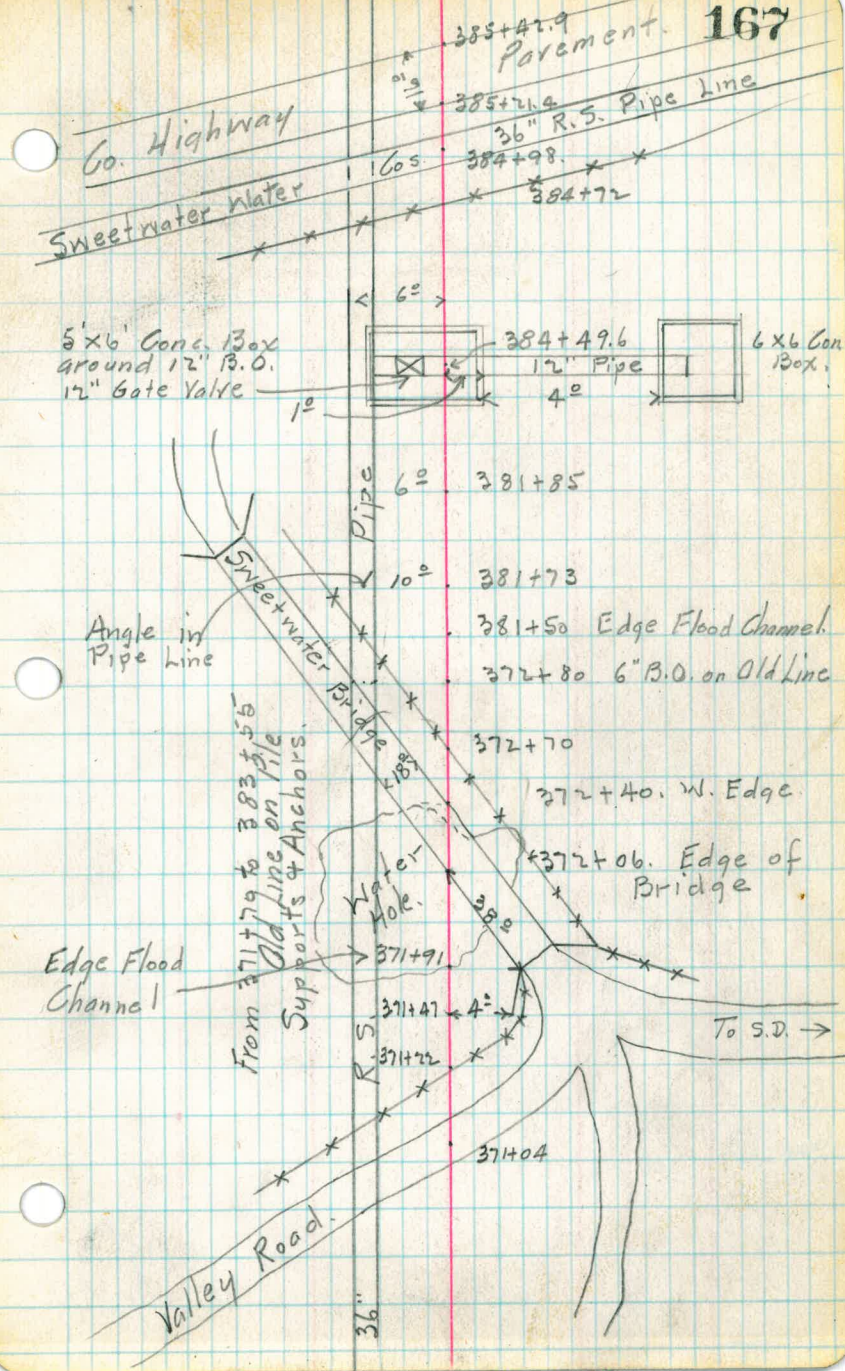 167
385+42.9
Pavement.
16º
385+21.4
Co. Highway
36" R.S. Pipe Line
Sweetwater Water Cos.
384+98.
384+72
6º
5'x6' Conc. Box
around 12" B.O.
12" Gate Valve
1º
384+49.6
12" Pipe
4º
6x6 Con
Box.
6º 381+85
10º 381+73
Angle in
Pipe Line
381+50 Edge Flood Channel.
372+80 6" B.O. on Old Line
Sweetwater Bridge
18º
372+70
372+40. W. Edge
372+06. Edge of
Bridge
From 371+79 to 383+55
Old Line on Pile
Supports & Anchors.
Water
Hole.
38º
Edge Flood
Channel
371+91
371+47 4º
371+22
To S.D. →
371+04
Valley Road.
36" R.S. Pipe